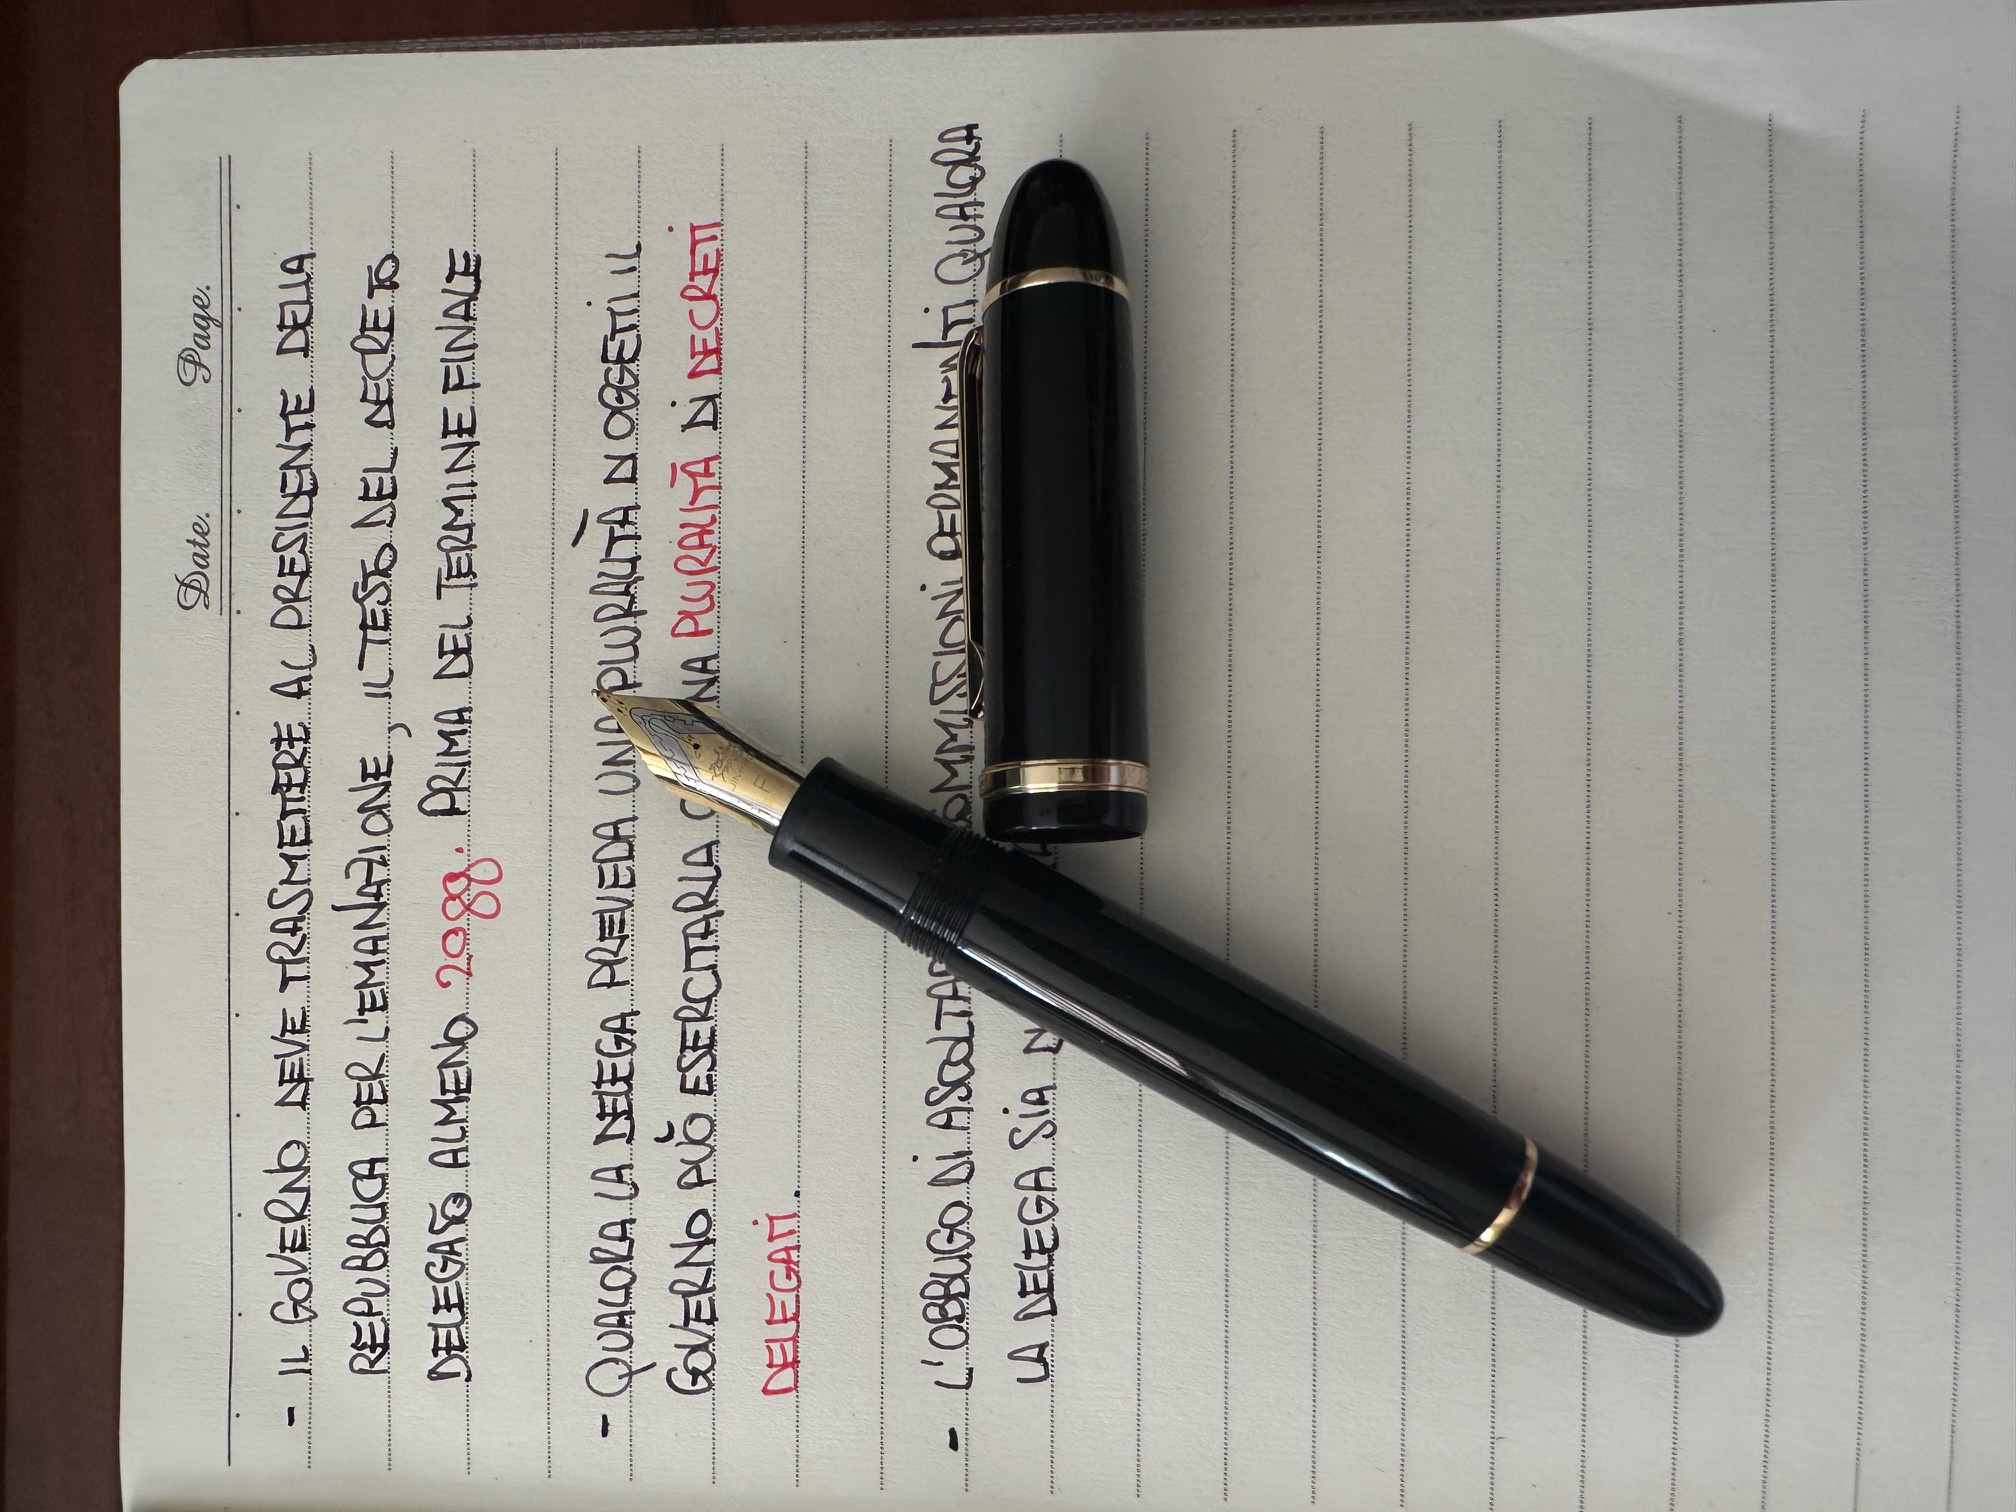 Date. Page.
- IL GOVERNO DEVE TRASMETTERE AL PRESIDENTE DELLA
REPUBBLICA PER L'EMANAZIONE, IL TESTO DEL DECRETO
DELEGATO ALMENO 20gg. PRIMA DEL TERMINE FINALE
- QUALORA LA DELEGA PREVEDA UNA PLURALITÀ DI OGGETTI IL
GOVERNO PUÒ ESERCITARLA PLURALITÀ DI DECRETI
DELEGATI.
- L'OBBLIGO DI COMMISSIONI PERMANENTI QUALORA
LA DELEGA SIA